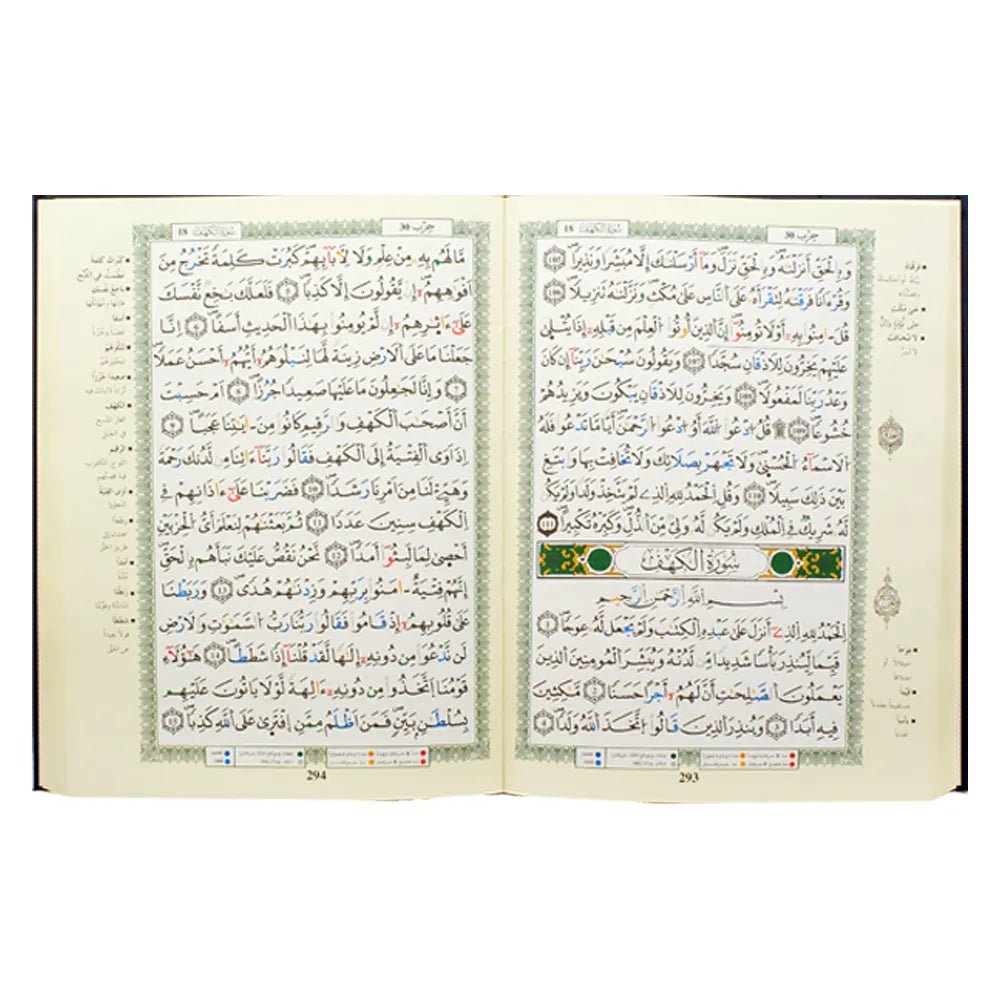 حِزْب 30
سُورَةُ الكَهْفِ 18
وَبِالْحَقِّ أَنزَلْنَٰهُ وَبِالْحَقِّ نَزَلَۖ وَمَآ أَرْسَلْنَٰكَ إِلَّا مُبَشِّراً وَنَذِيراًۖ 105
وَقُرْءَاناً فَرَقْنَٰهُ لِتَقْرَأَهُۥ عَلَى النَّاسِ عَلَىٰ مُكْثٖ وَنَزَّلْنَٰهُ تَنزِيلاًۖ 106
قُلَ اٰمِنُواْ بِهِۦٓ أَوْ لَا تُومِنُوٓاْۖ إِنَّ الذِينَ أُوتُواْ الْعِلْمَ مِن قَبْلِهِۦٓ إِذَا يُتْلَىٰ
عَلَيْهِمْ يَخِرُّونَ لِلْأَذْقَانِ سُجَّداً 107 وَيَقُولُونَ سُبْحَٰنَ رَبِّنَآ إِن كَانَ
وَعْدُ رَبِّنَا لَمَفْعُولاًۖ 108 وَيَخِرُّونَ لِلْأَذْقَانِ يَبْكُونَ وَيَزِيدُهُمْ
خُشُوعاً۩ 109 قُلُ ادْعُواْ اللَّهَ أَوُ ادْعُواْ الرَّحْمَٰنَ أَيّاً مَّا تَدْعُواْ فَلَهُ
الْأَسْمَآءُ الْحُسْنَىٰۖ وَلَا تَجْهَرْ بِصَلَاتِكَ وَلَا تُخَافِتْ بِهَا وَابْتَغِ
بَيْنَ ذَٰلِكَ سَبِيلاًۖ 110 وَقُلِ الْحَمْدُ لِلهِ الذِے لَمْ يَتَّخِذْ وَلَداً وَلَمْ يَكُن
لَّهُۥ شَرِيكٌ فِي الْمُلْكِ وَلَمْ يَكُن لَّهُۥ وَلِيٌّ مِّنَ الذُّلِّۖ وَكَبِّرْهُ تَكْبِيراًۖ 111
سُورَةُ الكَهْفِ
بِسْمِ اللَّهِ الرَّحْمَٰنِ الرَّحِيمِ
الْحَمْدُ لِلهِ الذِےٓ أَنزَلَ عَلَىٰ عَبْدِهِ الْكِتَٰبَ وَلَمْ يَجْعَل لَّهُۥ عِوَجاًۖ 1
قَيِّماً لِّيُنذِرَ بَأْساً شَدِيداً مِّن لَّدُنْهُ وَيُبَشِّرَ الْمُومِنِينَ الذِينَ
يَعْمَلُونَ الصَّٰلِحَٰتِ أَنَّ لَهُمُۥٓ أَجْراً حَسَناً 2 مَّٰكِثِينَ
فِيهِ أَبَداً 3 وَيُنذِرَ الذِينَ قَالُواْ اتَّخَذَ اللَّهُ وَلَداًۖ 4
فرقناه
على مكث
لا تخافت
عوجا
قيما
بأسا
293
حِزْب 30
سُورَةُ الكَهْفِ 18
مَّا لَهُم بِهِۦ مِنْ عِلْمٖ وَلَا لِأَبَآئِهِمْۖ كَبُرَتْ كَلِمَةً تَخْرُجُ مِنَ
اَفْوَٰهِهِمُۥٓۖ إِنْ يَّقُولُونَ إِلَّا كَذِباًۖ 5 فَلَعَلَّكَ بَٰخِعٌ نَّفْسَكَ
عَلَىٰٓ ءَاثَٰرِهِمُۥٓ إِن لَّمْ يُومِنُواْ بِهَٰذَا الْحَدِيثِ أَسَفاًۖ 6 إِنَّا
جَعَلْنَا مَا عَلَى الْأَرْضِ زِينَةً لَّهَا لِنَبْلُوَهُمُۥٓ أَيُّهُمُۥٓ أَحْسَنُ عَمَلاًۖ
7 وَإِنَّا لَجَٰعِلُونَ مَا عَلَيْهَا صَعِيداً جُرُزاًۖ 8 أَمْ حَسِبْتَ
أَنَّ أَصْحَٰبَ الْكَهْفِ وَالرَّقِيمِ كَانُواْ مِنَ اٰيَٰتِنَا عَجَباًۖ 9
إِذَ اَوَى الْفِتْيَةُ إِلَى الْكَهْفِ فَقَالُواْ رَبَّنَآ ءَاتِنَا مِن لَّدُنكَ رَحْمَةً
وَهَيِّئْ لَنَا مِنَ اَمْرِنَا رَشَداًۖ 10 فَضَرَبْنَا عَلَىٰٓ ءَاذَانِهِمْ فِي
الْكَهْفِ سِنِينَ عَدَداًۖ 11 ثُمَّ بَعَثْنَٰهُمْ لِنَعْلَمَ أَيُّ الْحِزْبَيْنِ
أَحْصَىٰ لِمَا لَبِثُوٓاْ أَمَداًۖ 12 نَّحْنُ نَقُصُّ عَلَيْكَ نَبَأَهُم بِالْحَقِّۖ
إِنَّهُمْ فِتْيَةٌ اٰمَنُواْ بِرَبِّهِمْ وَزِدْنَٰهُمْ هُدًىۖ 13 وَرَبَطْنَا
عَلَىٰ قُلُوبِهِمُۥٓ إِذْ قَامُواْ فَقَالُواْ رَبُّنَا رَبُّ السَّمَٰوَٰتِ وَالْأَرْضِ
لَن نَّدْعُوَاْ مِن دُونِهِۦٓ إِلَٰهاً لَّقَدْ قُلْنَآ إِذاً شَطَطاًۖ 14 هَٰٓؤُلَآءِ
قَوْمُنَا اتَّخَذُواْ مِن دُونِهِۦٓ ءَالِهَةً لَّوْلَا يَاتُونَ عَلَيْهِم
بِسُلْطَٰنٍ بَيِّنٍۖ فَمَنَ اَظْلَمُ مِمَّنِ اِفْتَرَىٰ عَلَى اللَّهِ كَذِباًۖ 15
كبرت كلمة
باخع نفسك
أسفا
لنبلوهم
صعيدا جرزا
الكهف
الرقيم
أوى الفتية
رشدا
أمدا
ربطنا
شططا
294